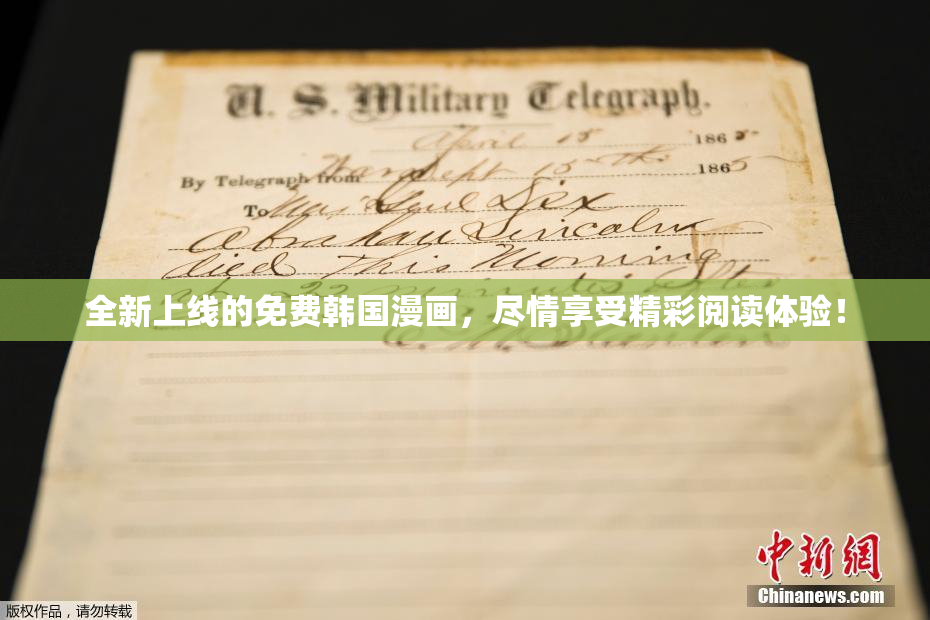 U. S. Military Telegraph.
April 15 1865
By Telegraph from War Dept 15th 1865
To Maj Genl Dix
Abraham Lincoln
died This Morning
at 22 minutes after
全新上线的免费韩国漫画，尽情享受精彩阅读体验！
中新网
Chinanews.com
版权作品，请勿转载